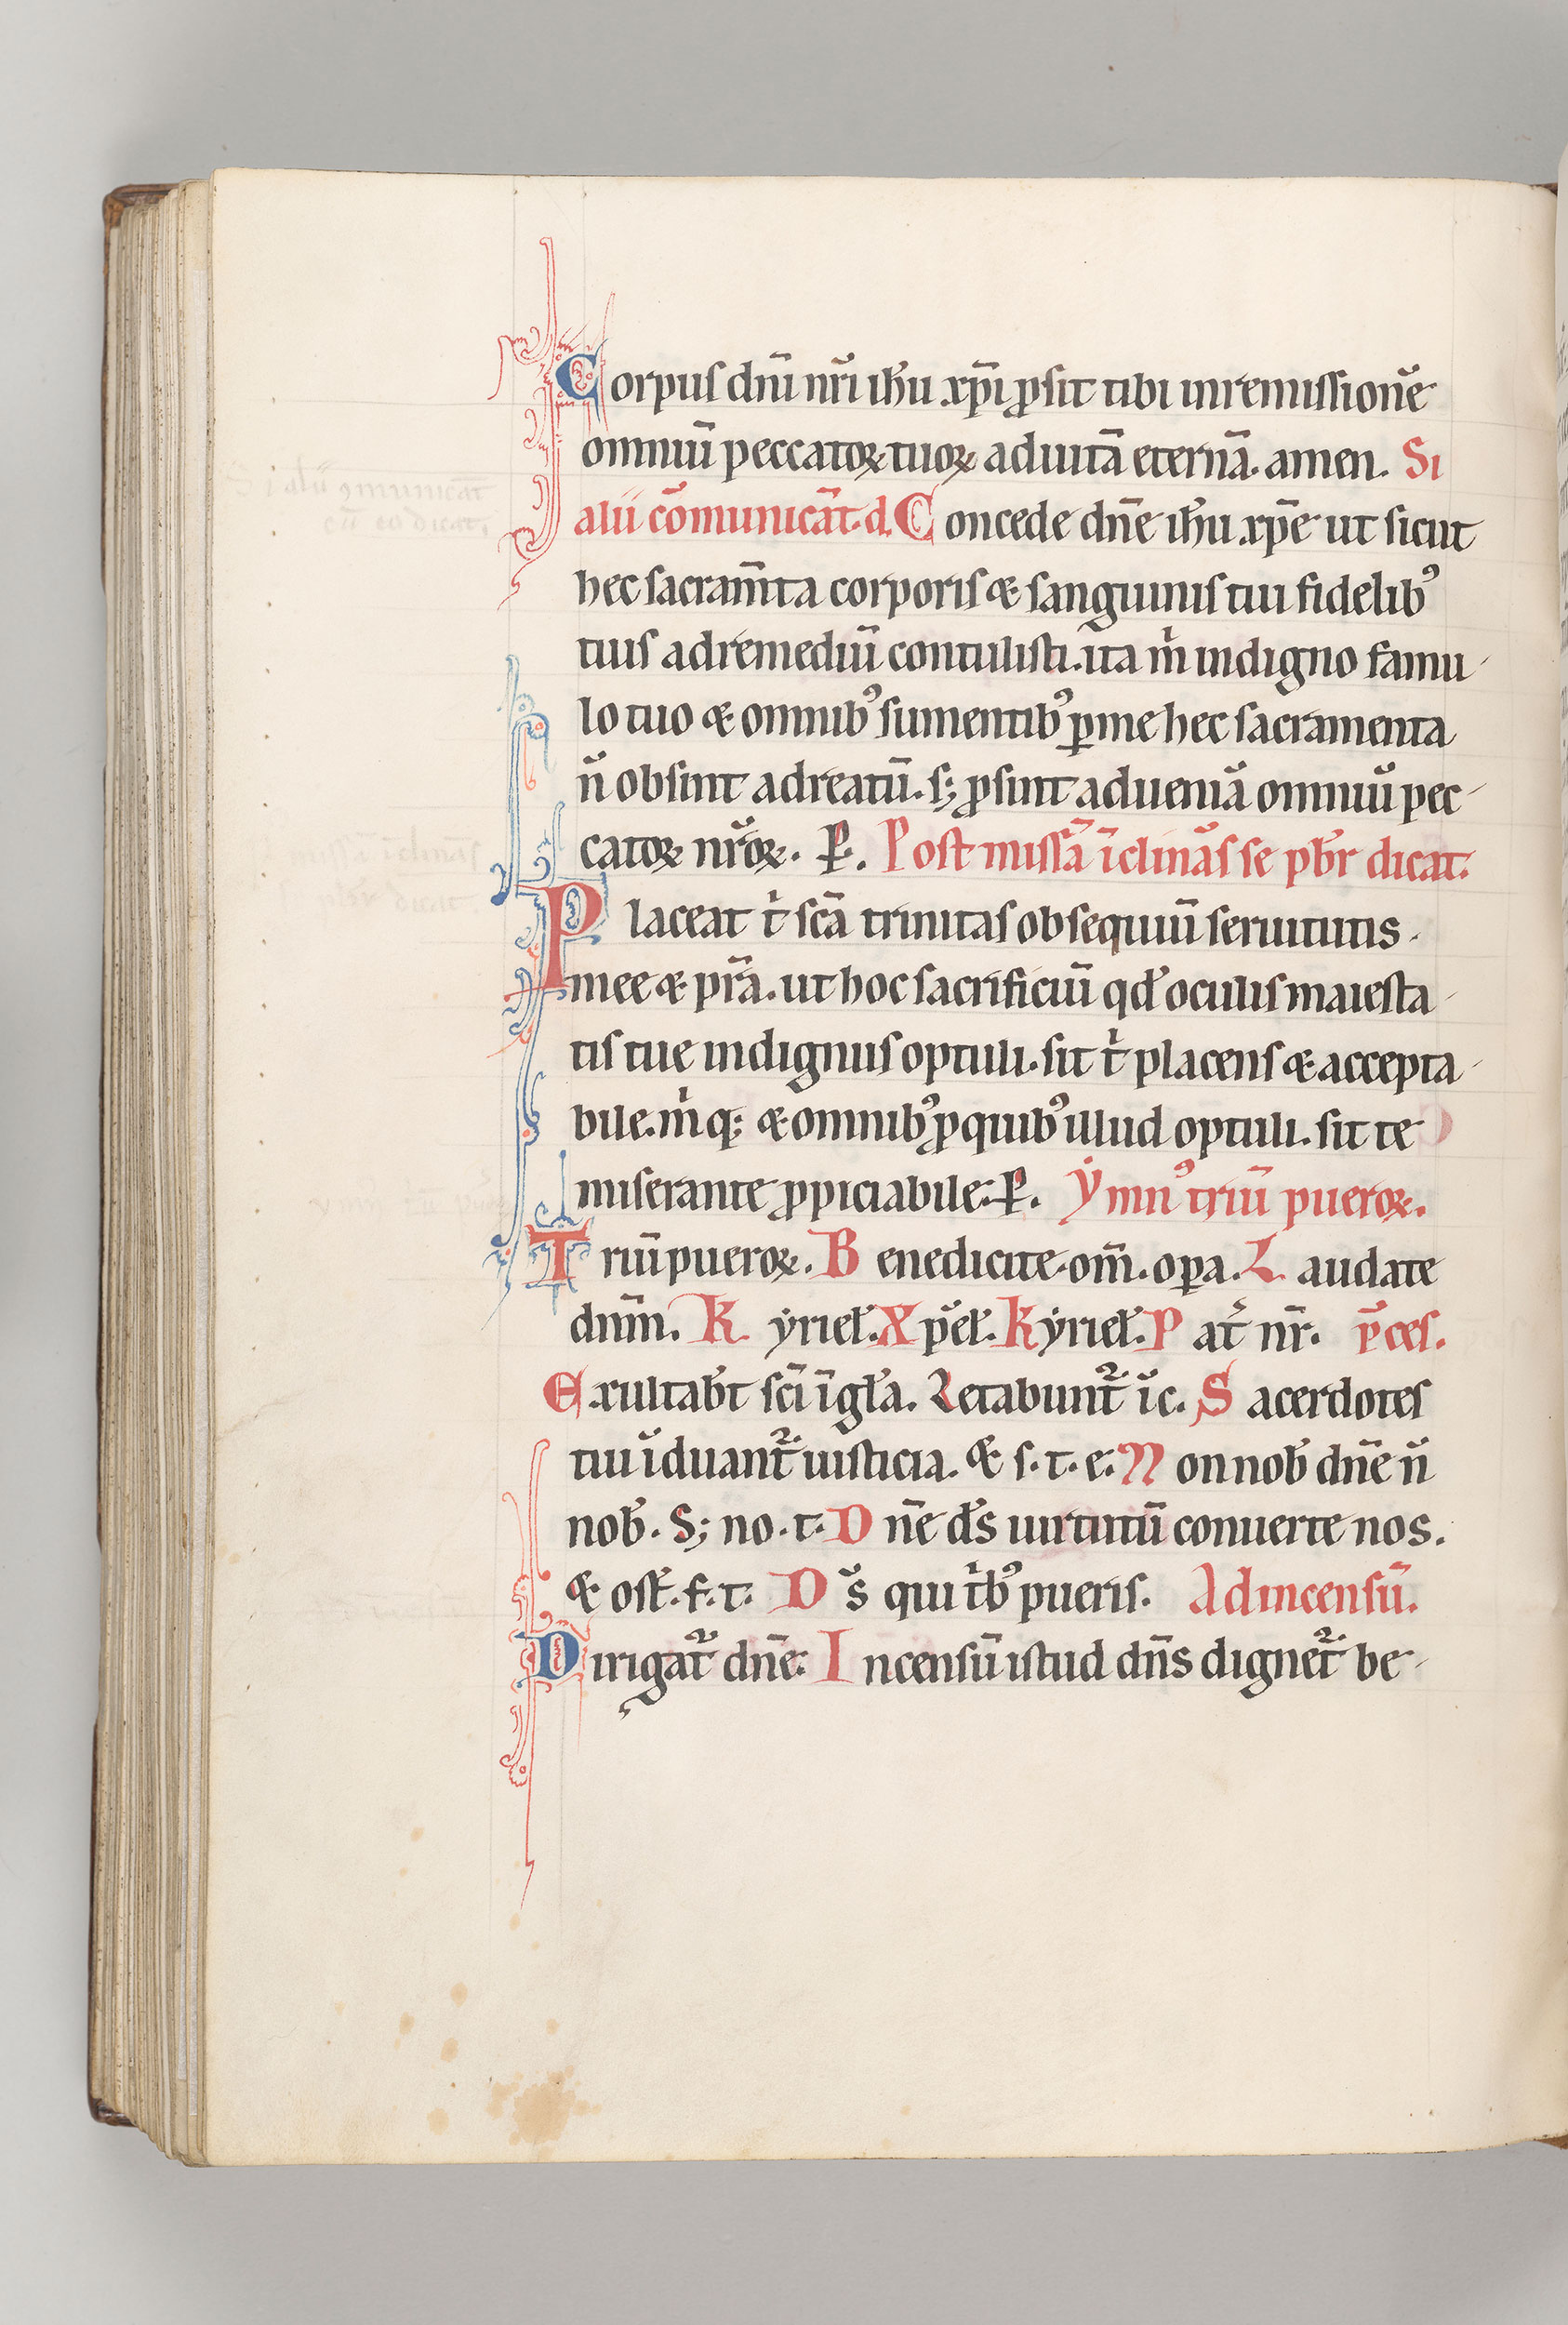 Corpus dñi nr̃i ih̃u xp̃i ꝓsit tibi in remissionẽ
omniũ peccatoꝝ tuoꝝ ad uitã eternã. amen. Si
alii cõmunicãt. d. Concede dñe ih̃u xp̃e ut sicut
hec sacram̃ta corporis & sanguinis tui fidelibꝰ
tuis ad remediũ contulisti. ita m̃ indigno famu-
lo tuo & omnibꝰ sumentibꝰ ꝑ me hec sacramenta
ñ obsint ad reatũ. s; ꝓsint ad ueniã omniũ pec-
catoꝝ nr̃oꝝ. P̱. Post missã ĩclinãs se pb̃r dicat.
Placeat t̃ scã trinitas obsequiũ seruitutis
mee & pr̃a. ut hoc sacrificiũ qd̃ oculis maiesta-
tis tue indignus optuli. sit t̃ placens & accepta-
bile. m̃ q; & omnibꝰ ꝓ quibꝰ illud optuli. sit te
miserante ꝓpiciabile. P̱. Ẏmnꝰ triũ pueroꝝ.
Triũ pueroꝝ. Benedicite. om̃. oꝑa. Laudate
dñm. K ẏriel̃. Xp̃el̃. Kẏriel̃. Pat̃ nr̃. p̃ces.
Exultab̃t sc̃i ĩ gl̃a. Letabunt̃ ĩ c. Sacerdotes
tui ĩduant̃ iusticia. & s. t. e. Non nob̃ dñe ñ
nob̃. S; no. t. Dñe d̃s uirtutũ conuerte nos.
& ost̃. f. t. Ds̃ qui t̃bꝰ pueris. Ad incensũ.
Dirigat̃ dñe. Incensũ istud dñs dignet̃ be-